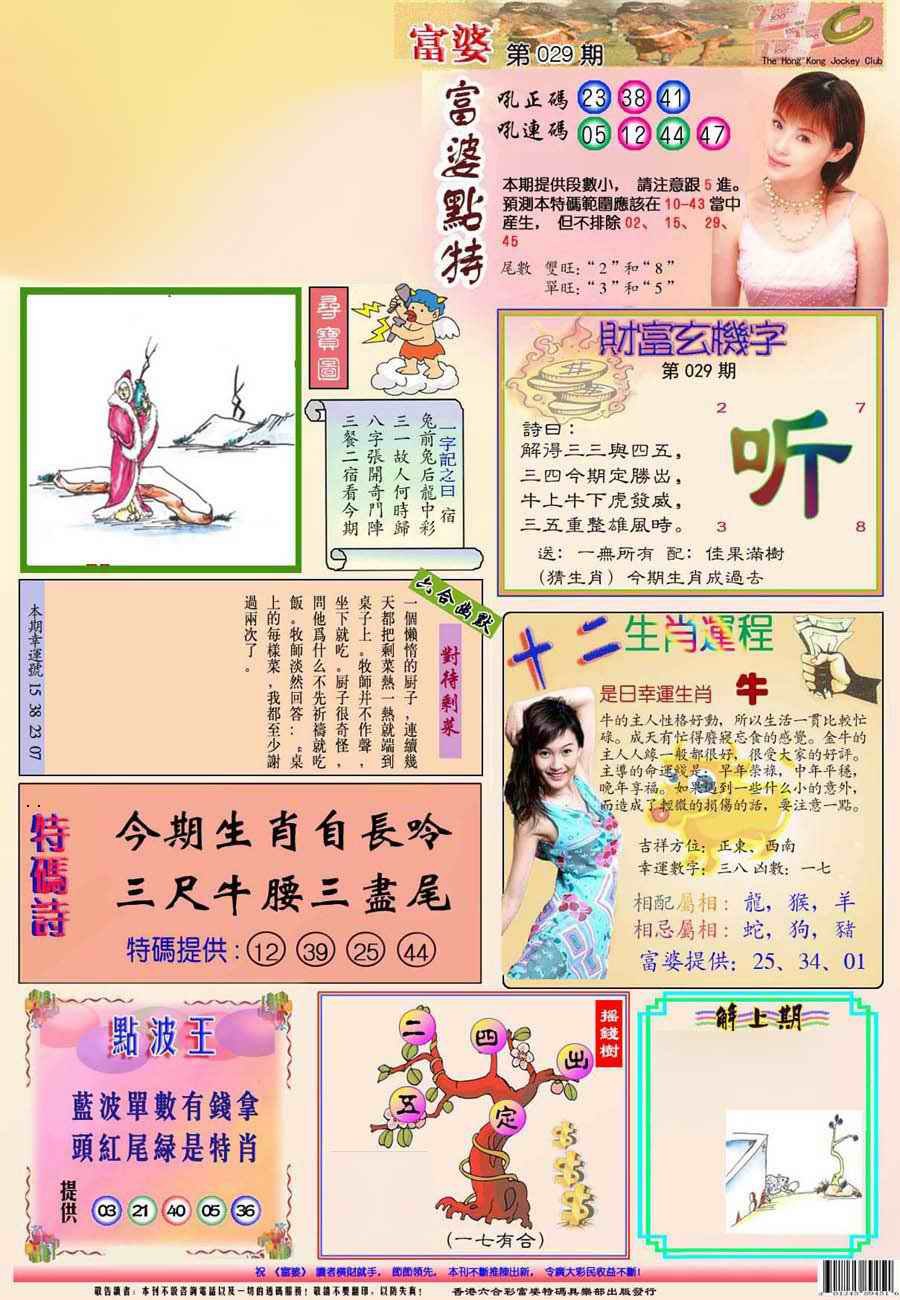 富婆 第029期
The Hong Kong Jockey Club
富婆點特
吼正碼 23 38 41
吼連碼 05 12 44 47
本期提供段數小，請注意跟5進。
預測本特碼範圍應該在10-43當中
産生，但不排除02、15、29、
45
尾數 雙旺：“2”和“8”
單旺：“3”和“5”
尋寶圖
一字記之曰 宿
兔前兔后龍中彩
三一故人何時歸
八字張開奇門陣
三餐二宿看今期
財富玄機字
第029期
詩曰：
解得三三與四五，
三四今期定勝出，
牛上牛下虎發威，
三五重整雄風時。
2 7
听
3 8
送：一無所有 配：佳果滿樹
(猜生肖) 今期生肖成過去
六合幽默
對待剩菜
一個懶惰的厨子，連續幾
天都把剩菜熱一熱就端到
桌子上。牧師并不作聲，
坐下就吃。厨子很奇怪，
問他爲什么不先祈禱就吃
飯。牧師淡然回答：“桌
上的每樣菜，我都至少謝
過兩次了。
本期幸運號 15 38 23 07
十二生肖運程
是日幸運生肖 牛
牛的主人性格好動，所以生活一貫比較忙
碌。成天有忙得廢寢忘食的感覺。金牛的
主人人緣一般都很好，很受大家的好評。
主導的命運綫是：早年榮祿，中年平穩，
晚年享福。如果遇到一些什么小的意外，
而造成了輕微的損傷的話，要注意一點。
吉祥方位：正東、西南
幸運數字：三八 凶數：一七
相配屬相：龍，猴，羊
相忌屬相：蛇，狗，豬
富婆提供：25、34、01
特碼詩
今期生肖自長吟
三尺牛腰三盡尾
特碼提供：12 39 25 44
點波王
藍波單數有錢拿
頭紅尾緑是特肖
提供 03 21 40 05 36
搖錢樹
二 四 出
五 定
(一七有合)
解上期
祝《富婆》讀者橫財就手，節節領先，本刊不斷推陳出新，令廣大彩民收益不斷！
敬告讀者：本刊不設咨詢電話以及一切的透碼服務！敬請不要翻印，以防失真！ 香港六合彩富婆特碼具樂部出版發行